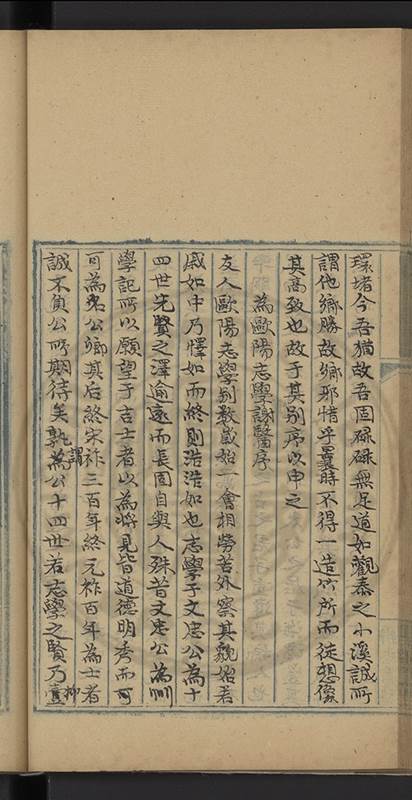 環堵今吾猶故吾固碌碌無足道如觀泰之小溪誠所
謂他鄉勝故鄉邪惜乎曩時不得一造竹所而徒想像
其高致也故于其別序以申之
為歐陽志學謝醫序
友人歐陽志學別數歲始一會相勞苦外察其貌始若
戚如中乃懌如而終則浩浩如也志學于文忠公為十
四世先賢之澤逾遠而長固自與人殊昔文忠公為州
學記所以願望于吉士者以為將見皆道德明秀而可
可為名公鄉其后終宋祚三百年終元祚百年為士者
誠不負公所期待矣孰謂為公十四世若志學之賢乃壹抑